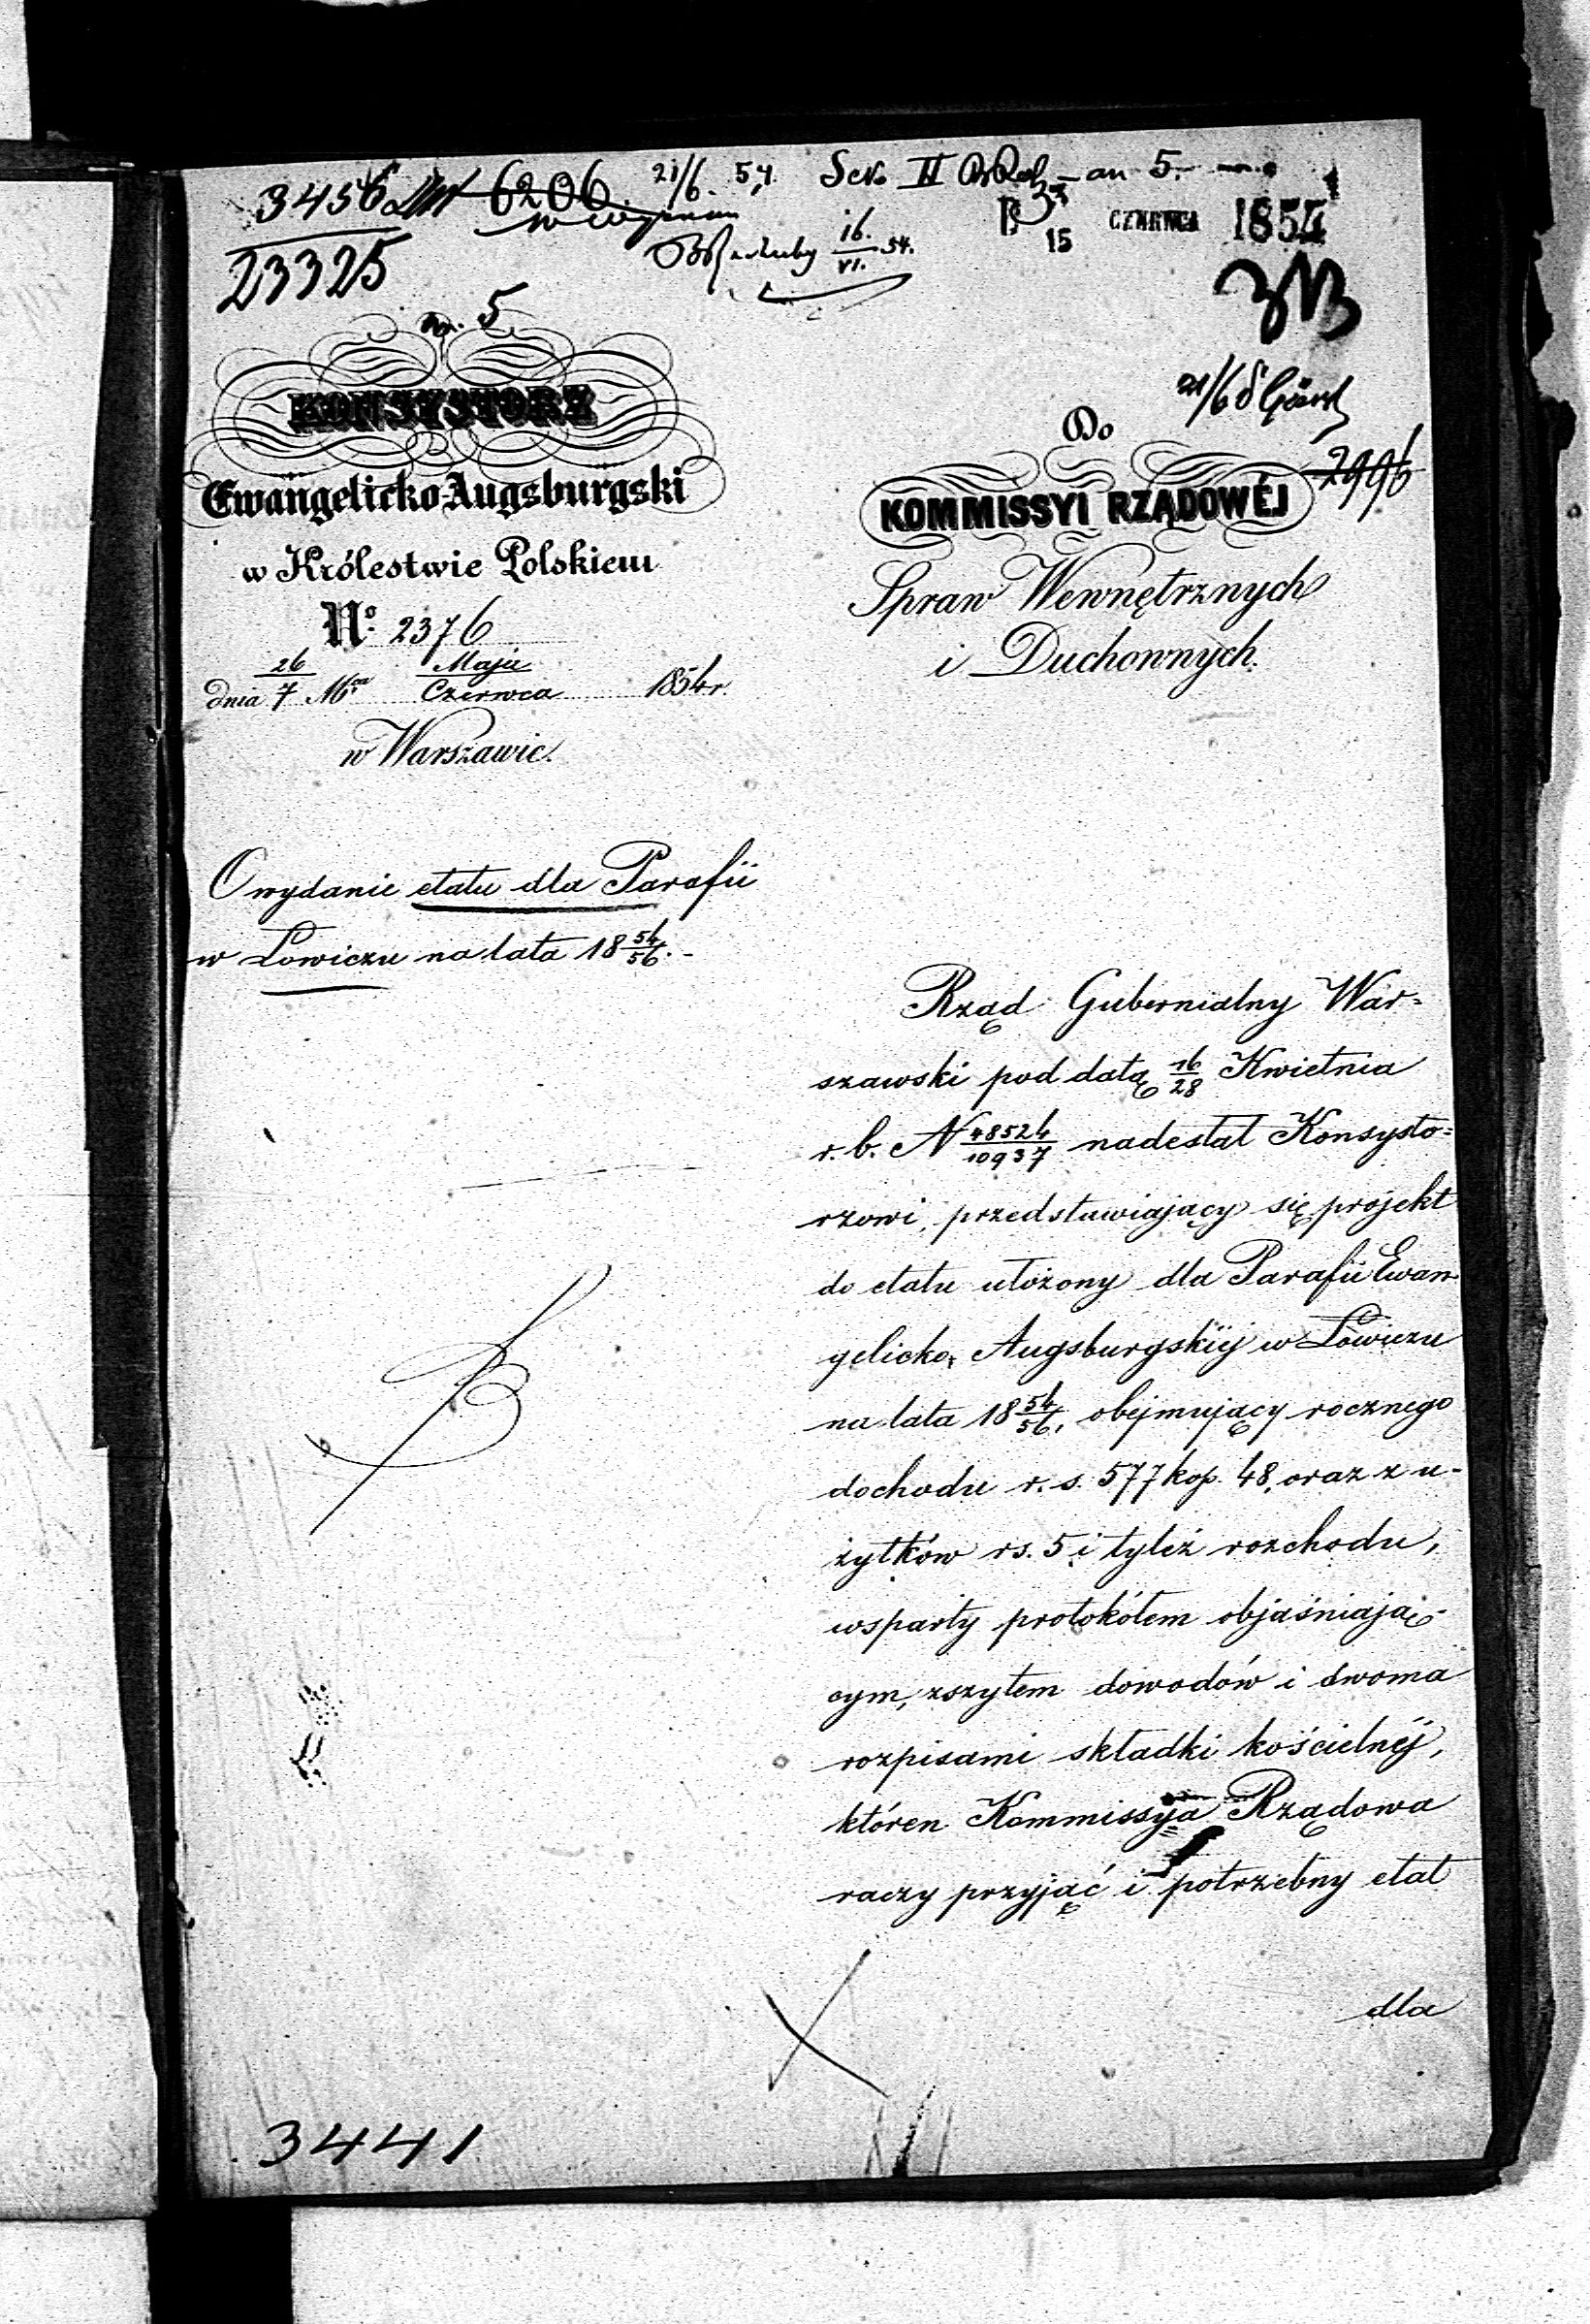 3456
6206
21/6. 54.
II
an 5.
23325
16./VI. 54.
15 CZERWCA 1854
5
KONSYSTORZ
Ewangelicko-Augsburgski
w Królestwie Polskiem
No. 2376
dnia 26/7 Mca Maja/Czerwca 1854 r.
w Warszawie.
21/6
Do
2996
KOMMISSYI RZĄDOWÉJ
Spraw Wewnętrznych
i Duchownych.
O wydanie etatu dla Parafii
w Łowiczu na lata 18 54/56. -
Rząd Gubernialny War=
szawski pod datą 16/28 Kwietnia
r. b. N 48524/10937 nadesłał Konsysto=
rzowi, przedstawiający się projekt
do etatu ułożony dla Parafii Ewan-
gelicko-Augsburgskiéj w Łowiczu
na lata 18 54/56, obejmujący rocznego
dochodu r. s. 577 kop. 48, oraz z u-
żytków rs. 5 i tyleż rozchodu,
wsparty protokółem objaśniają-
cym, zszytem dowodów i dwoma
rozpisami składki kościelnéj,
któren Kommissyja Rządowa
raczy przyjąć i potrzebny etat
dla
3441